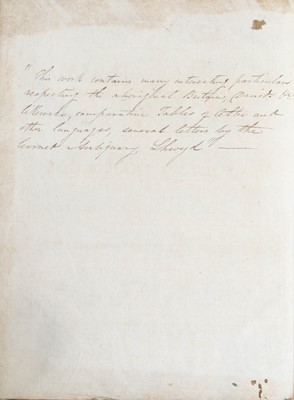 "This work contains many interesting particulars
respecting the aboriginal Britains, Druids &c
likewise, comparative Tables of Celtic and
other languages, several letters by the
learned Antiquary, Lhwyd" —